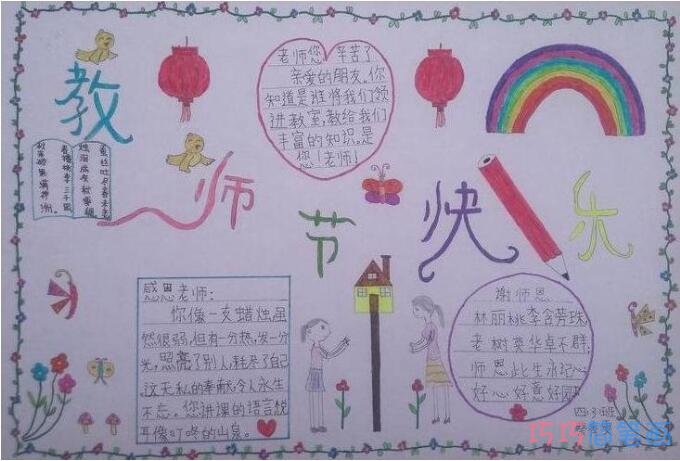 教
师
节
快
乐
老师您 辛苦了
亲爱的朋友,你
知道是谁将我们领
进教室,教给我们
丰富的知识。是
您!老师!
感恩老师:
你像一支蜡烛虽
然很弱,但有一分热,发一分
光,照亮了别人,耗尽了自己
这无私的奉献,令人永生
不忘。您讲课的语言悦
耳像叮咚的山泉。
谢师恩
林丽桃李含芳珠,
老树英华卓不群,
师恩此生永记心
好心好意好园
四.3班
巧巧简笔画